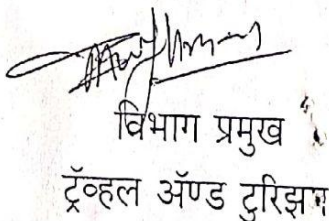 विभाग प्रमुख
ट्रॅव्हल ॲण्ड टुरिझम